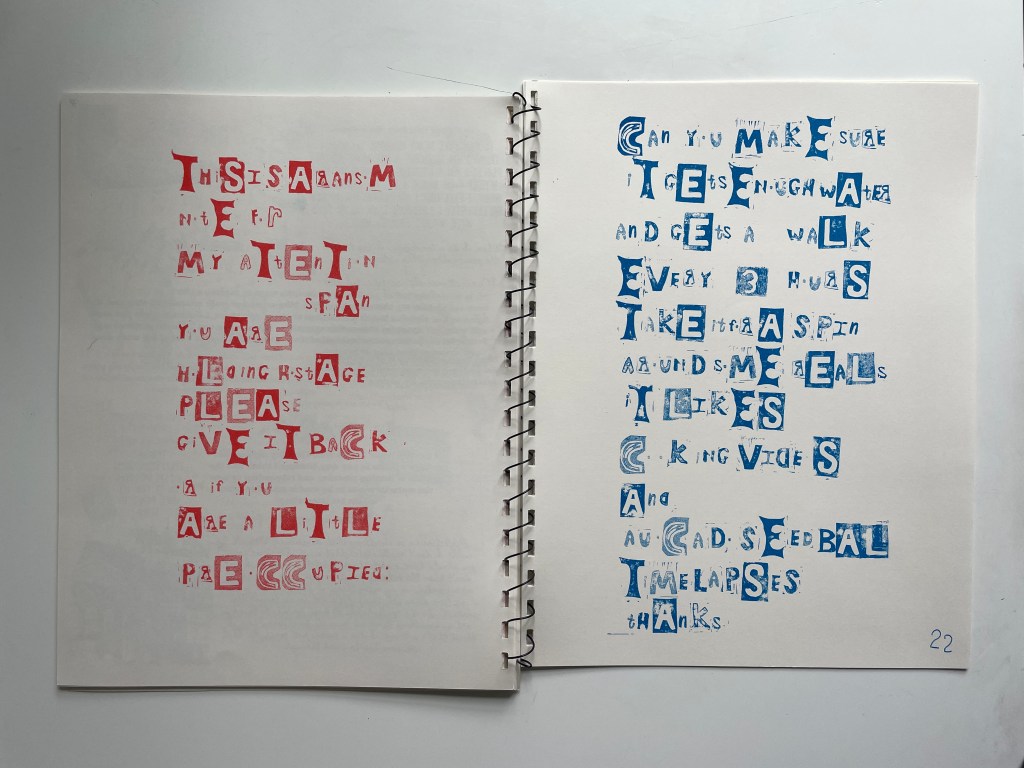 THiS IS A RANS·M
N·tE F·r
MY AttEnTi·N
sPAn
Y·U ARE
H·LDING H·stAGE
PLEASE
GiVE IT BACK
·R if Y·U
ARE A LiTtLE
PRE·CCUPIED:
CAN Y·U MAKE SURE
iT GEtS EN·UGH WAtER
AND GEtS A WALK
EVERY 3 H·URS
TAKE it f·R A SPIN
AR·UND S·ME REALS
iT LIKES
C··KiNG VIDE·S
AnD
AV·CAD· SEED BALL
TiMELAPSES
tHAnKS
22